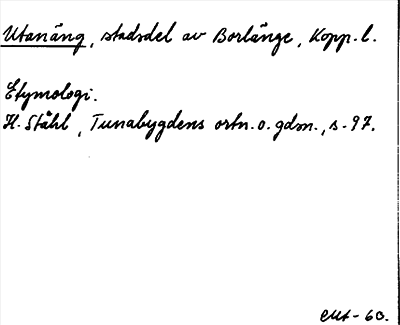 Utanäng, stadsdel av Borlänge, Kopp. l.
Etymologi.
H. Ståhl, Tunabygdens ortn. o. gdsn., s. 97.
-60.